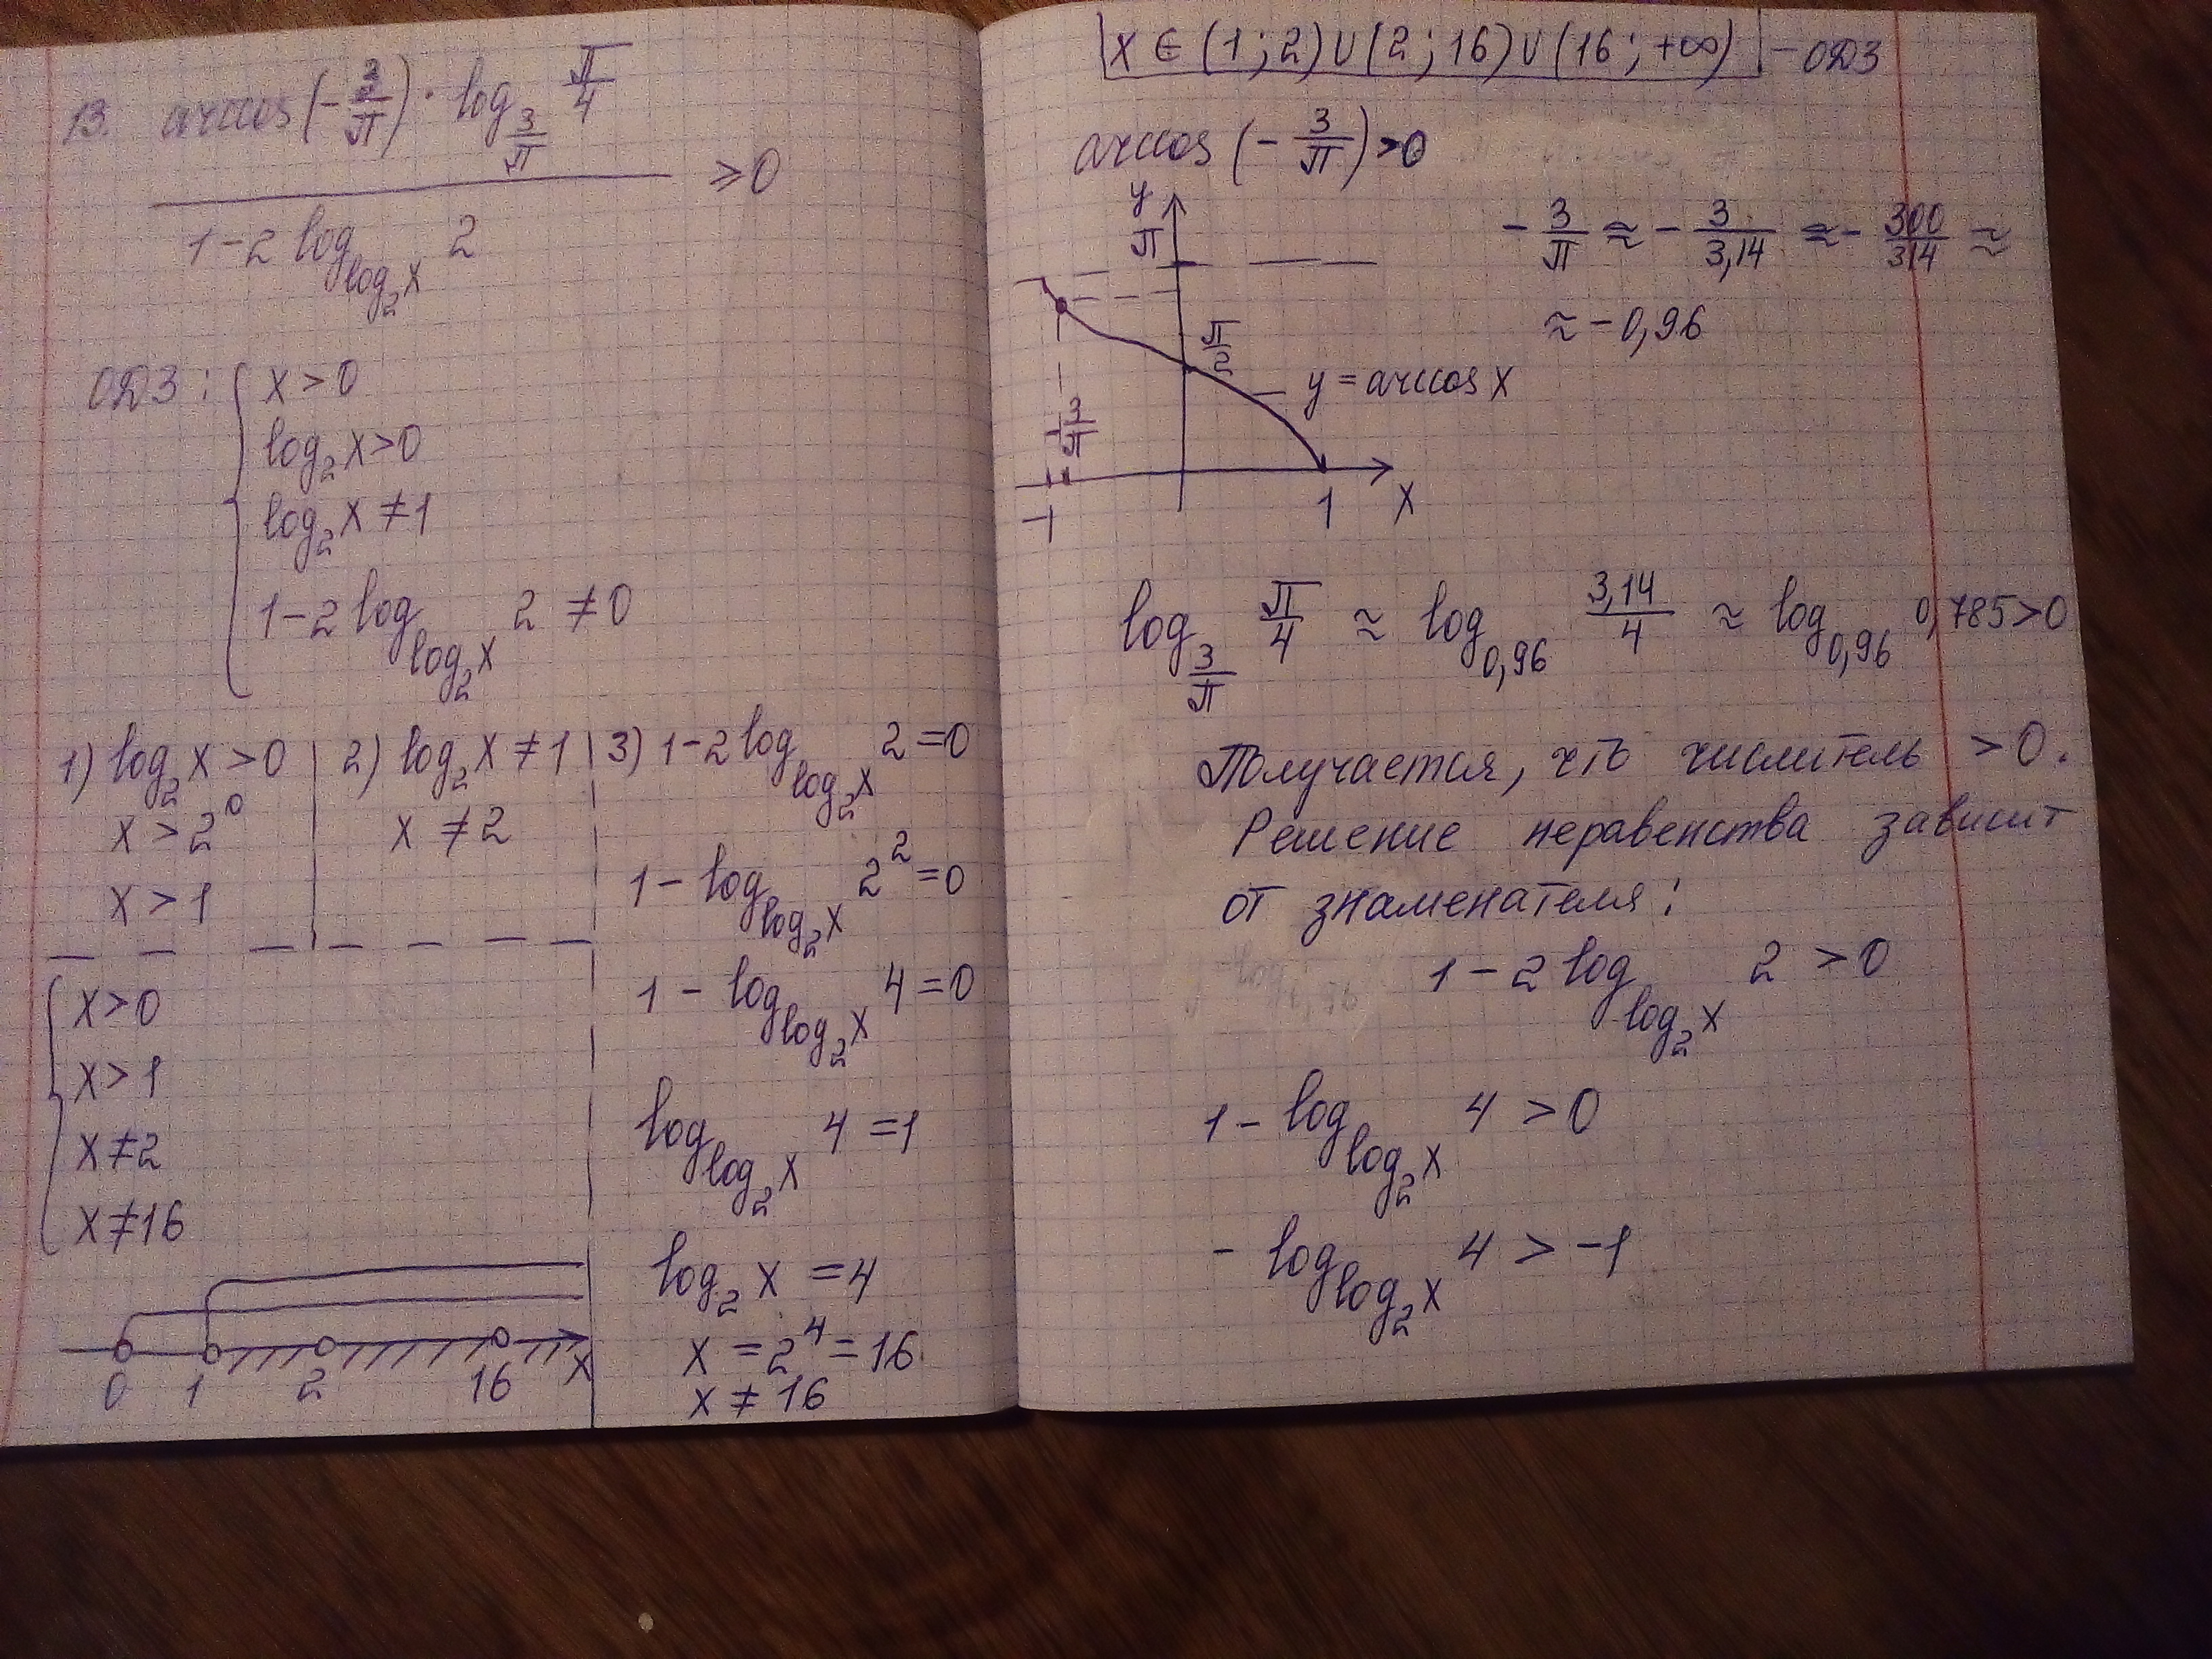 13. arccos(-3/π) · log_{3/π} π/4
≥ 0
1-2 log_{log₂x} 2
ОДЗ: { x > 0
log₂x > 0
log₂x ≠ 1
1-2 log_{log₂x} 2 ≠ 0
1) log₂x > 0
x > 2⁰
x > 1
2) log₂x ≠ 1
x ≠ 2
3) 1-2 log_{log₂x} 2 = 0
1 - log_{log₂x} 2² = 0
1 - log_{log₂x} 4 = 0
log_{log₂x} 4 = 1
log₂ x = 4
x = 2⁴ = 16
x ≠ 16
{ x > 0
x > 1
x ≠ 2
x ≠ 16
0 1 2 16 x
x ∈ (1; 2) ∪ (2; 16) ∪ (16; +∞) - ОДЗ
arccos (- 3/π) > 0
- 3/π ≈ - 3/3,14 ≈ - 300/314 ≈
≈ - 0,96
y
π
π/2
y = arccos x
-3/π
-1 1 x
log_{3/π} π/4 ≈ log_{0,96} 3,14/4 ≈ log_{0,96} 0,785 > 0
Получается, что числитель > 0.
Решение неравенства зависит
от знаменателя:
1 - 2 log_{log₂x} 2 > 0
1 - log_{log₂x} 4 > 0
- log_{log₂x} 4 > -1